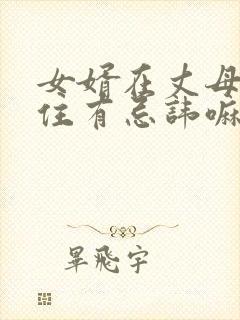 女婿在丈母
住有忌諱嘛
畢飛宇